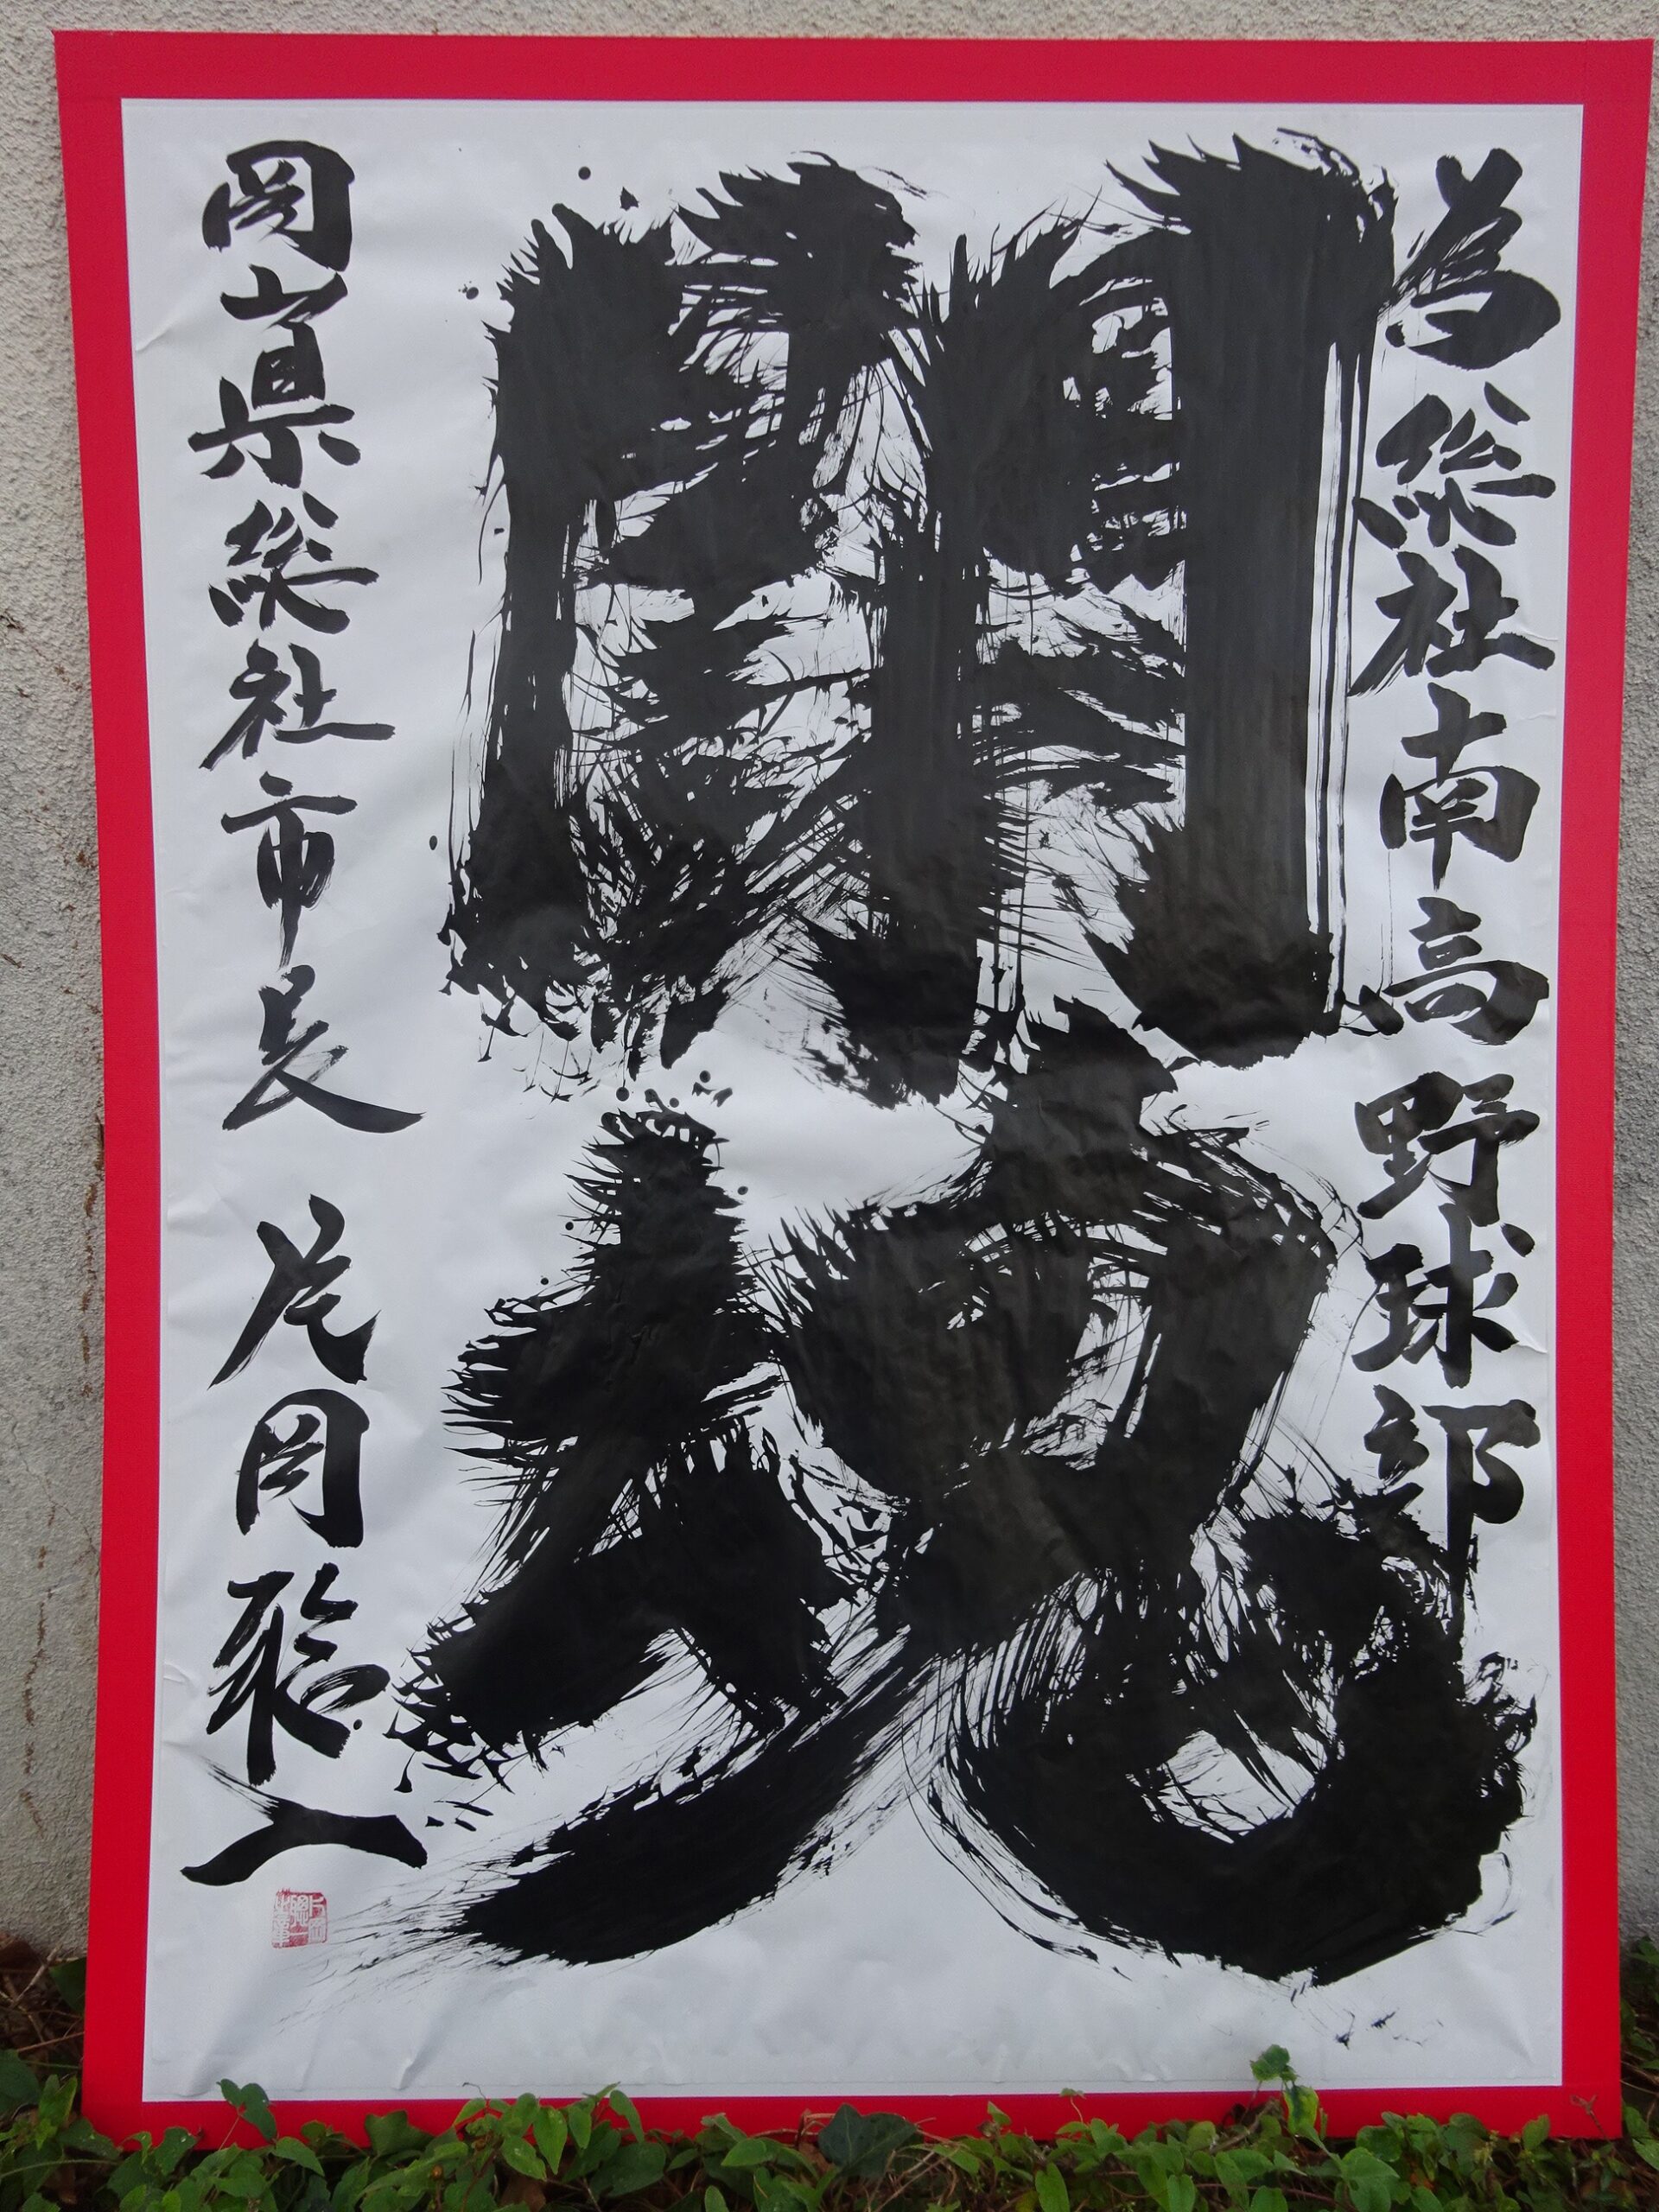 為 総社南高 野球部
闘魂
岡山県総社市長 片岡聡一